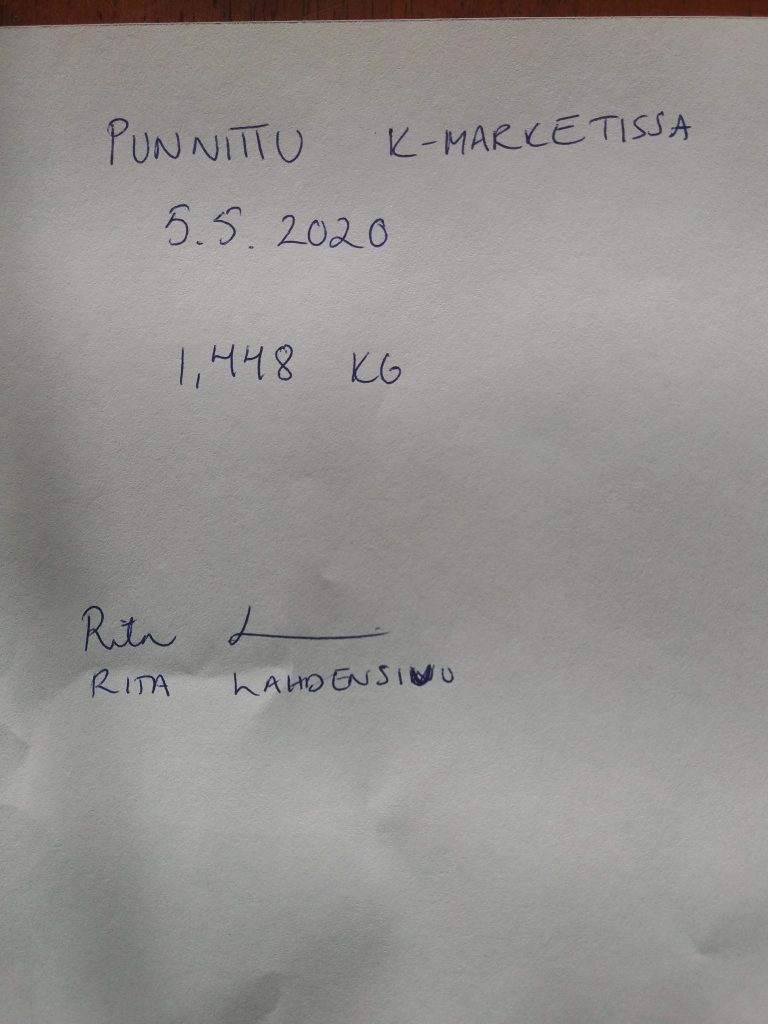 PUNNITTU K-MARKETISSA
5.5.2020
1,448 KG
Rita L
RITA LAHDENSIVU